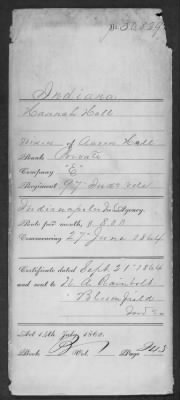 Indiana
Hannah Hall
Widow of Aaron Hall
Rank Private
Company "E"
Regiment 97 Ind vols
Indianapolis Agency.
Rate per month, $ 8.00
Commencing 27 June 1864
Certificate dated Sept 21" 1864
and sent to
Bloomfield
Act 14th July, 1862.
Book B Vol. Page